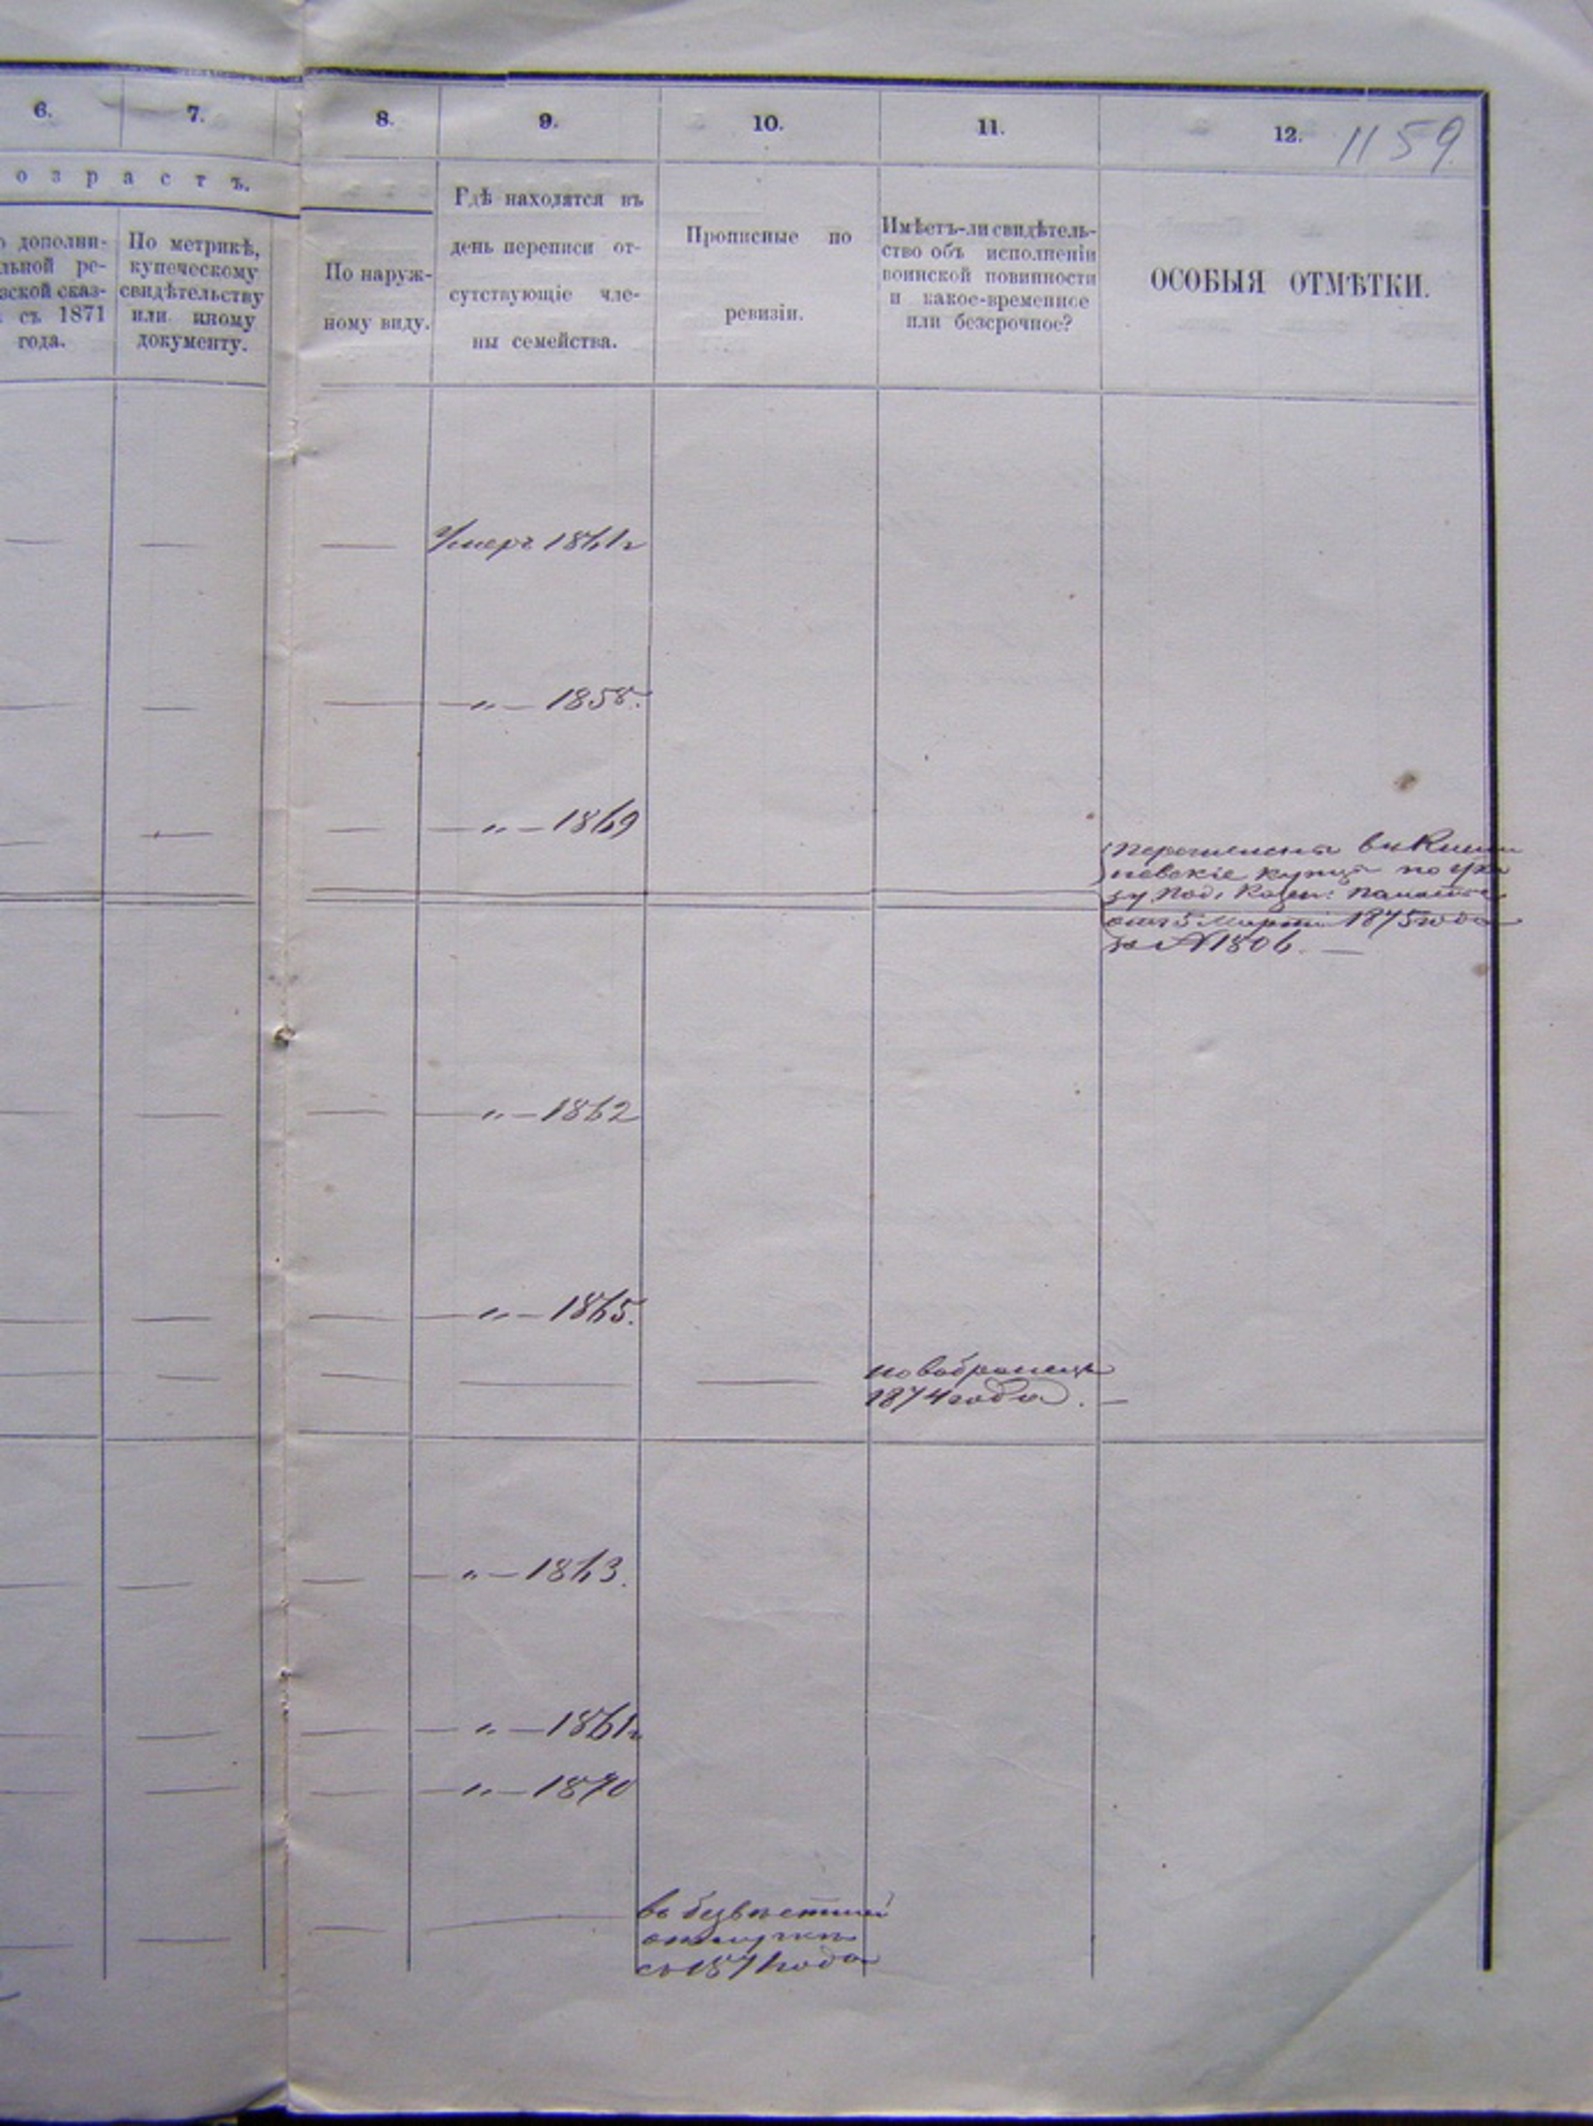 6. 7. 8. 9. 10. 11. 12. 1159
озрастъ.
дополни-
льной ре-
зской сказ-
съ 1871
года.
По метрикѣ,
купеческому
свидѣтельству
или иному
документу.
По наруж-
ному виду.
Гдѣ находятся въ
день переписи от-
сутствующіе чле-
ны семейства.
Прописные по
ревизіи.
Имѣетъ-ли свидѣтель-
ство объ исполненіи
воинской повинности
и какое-временное
или безсрочное?
ОСОБЫЯ ОТМѢТКИ.
— — — Умеръ 1861 г
— — — — „ — 1858.
— — — — „ — 1869
въ Киши
невскіе купцы по ука
зу Под. Казен: Палаты
отъ 5 Марта 1875 года
за № 1806. —
— — — — „ — 1862
— — — — „ — 1865.
— — — — — новобранецъ
1874 года. —
— — — — „ — 1863.
— — — — „ — 1861 г
— — — — „ — 1870
— — — — въ безвѣстной
отлучкѣ
съ 1871 года